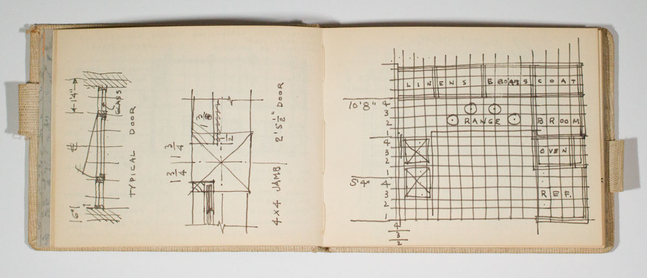 1'4"
GLASS
6"
TYPICAL DOOR
1 3/4
1 3/4
1/2
4x4 JAMB
2'5½" DOOR
LINENS BROOMS COAT
10'8"
4
3
2
1
RANGE
BROOM
4
3
2
1
OVEN
5'4"
4
3
2
1
REF.
4
3
2